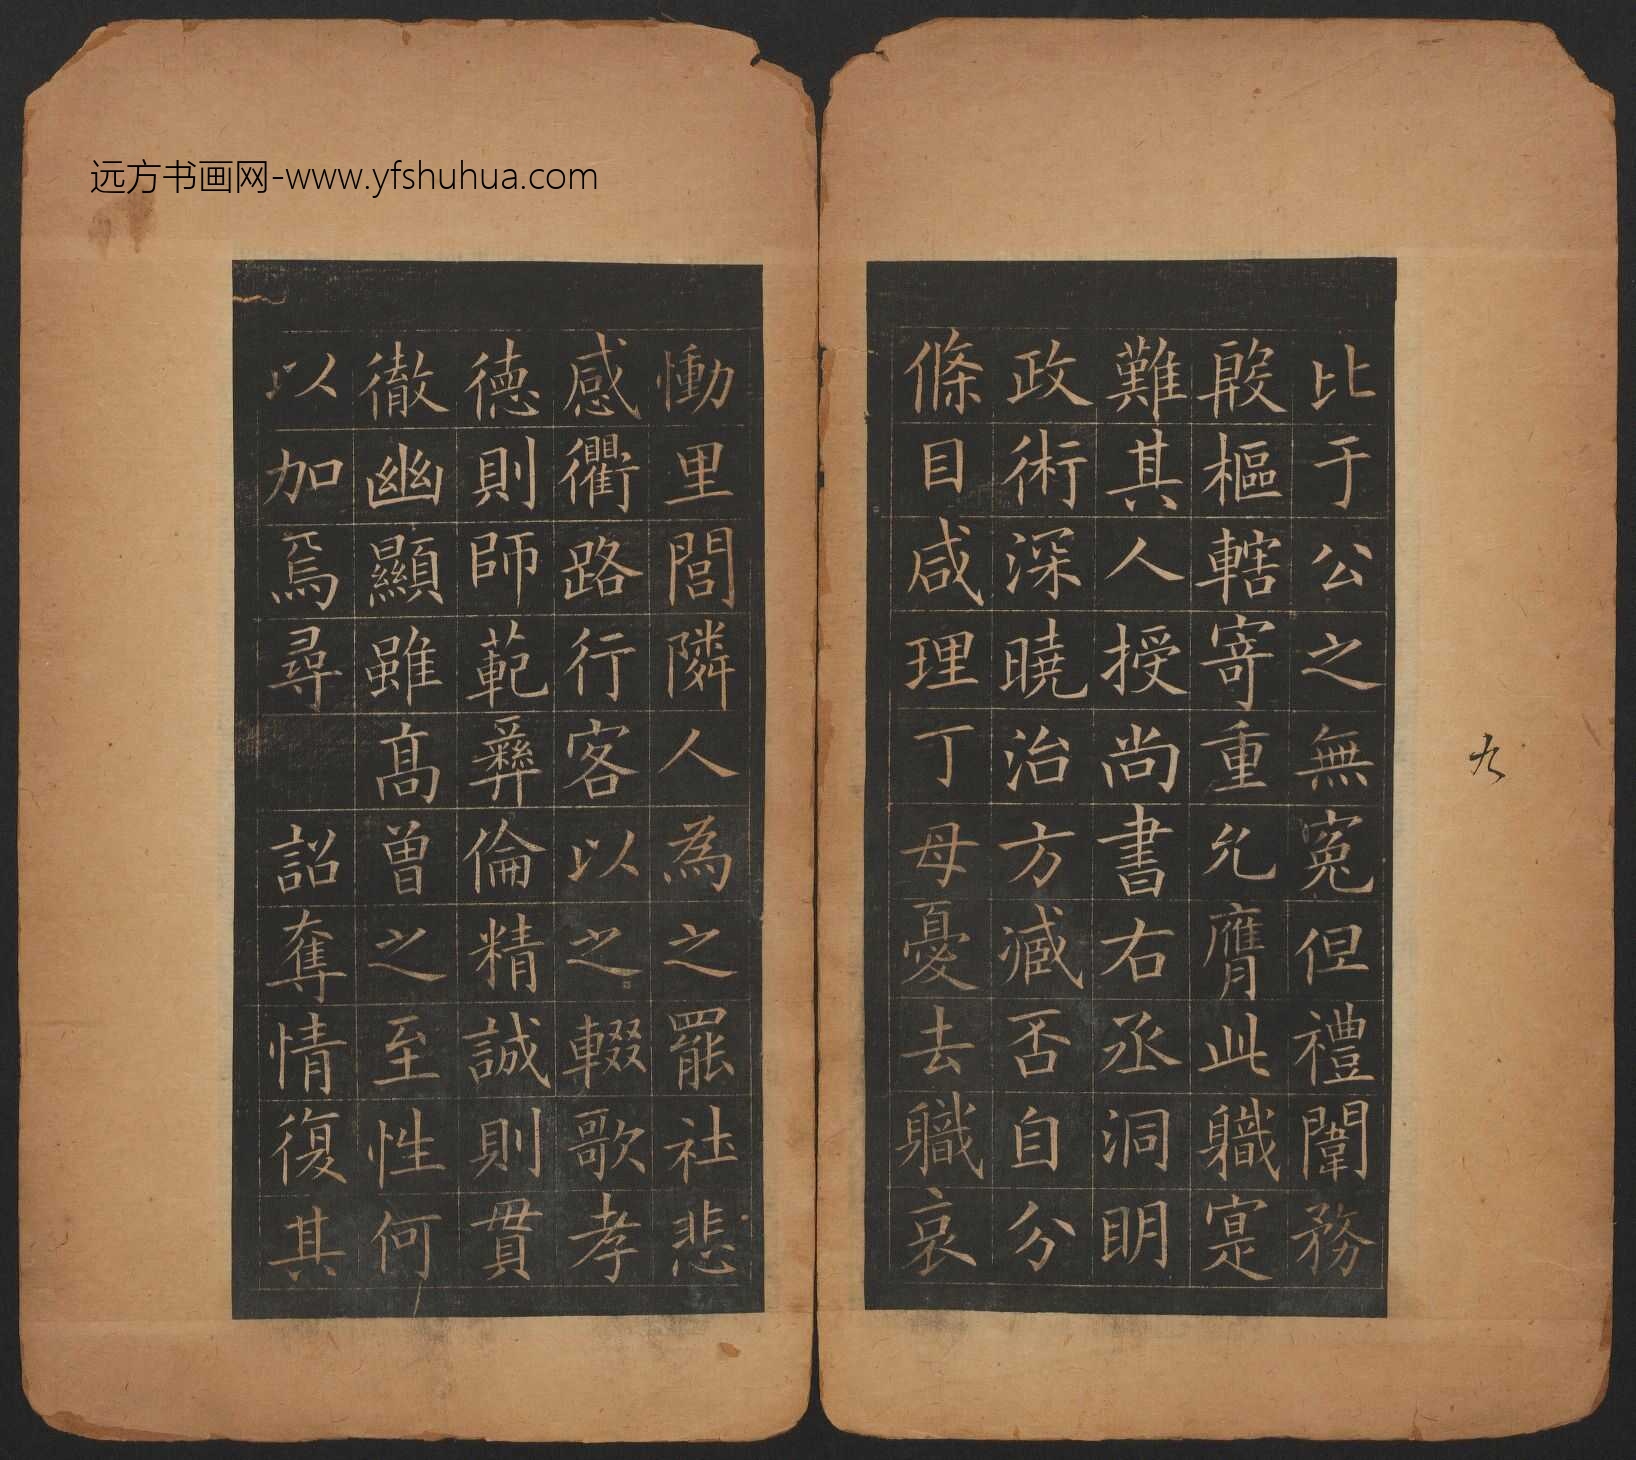 远方书画网-www.yfshuhua.com
九
比于公之無冤但禮闈務
殷樞轄寄重允膺此職寔
難其人授尚書右丞洞明
政術深曉治方臧否自分
條目咸理丁母憂去職哀
慟里閭隣人為之罷社悲
感衢路行客以之輟歌孝
德則師範彝倫精誠則貫
徹幽顯雖高曾之至性何
以加焉尋詔奪情復其